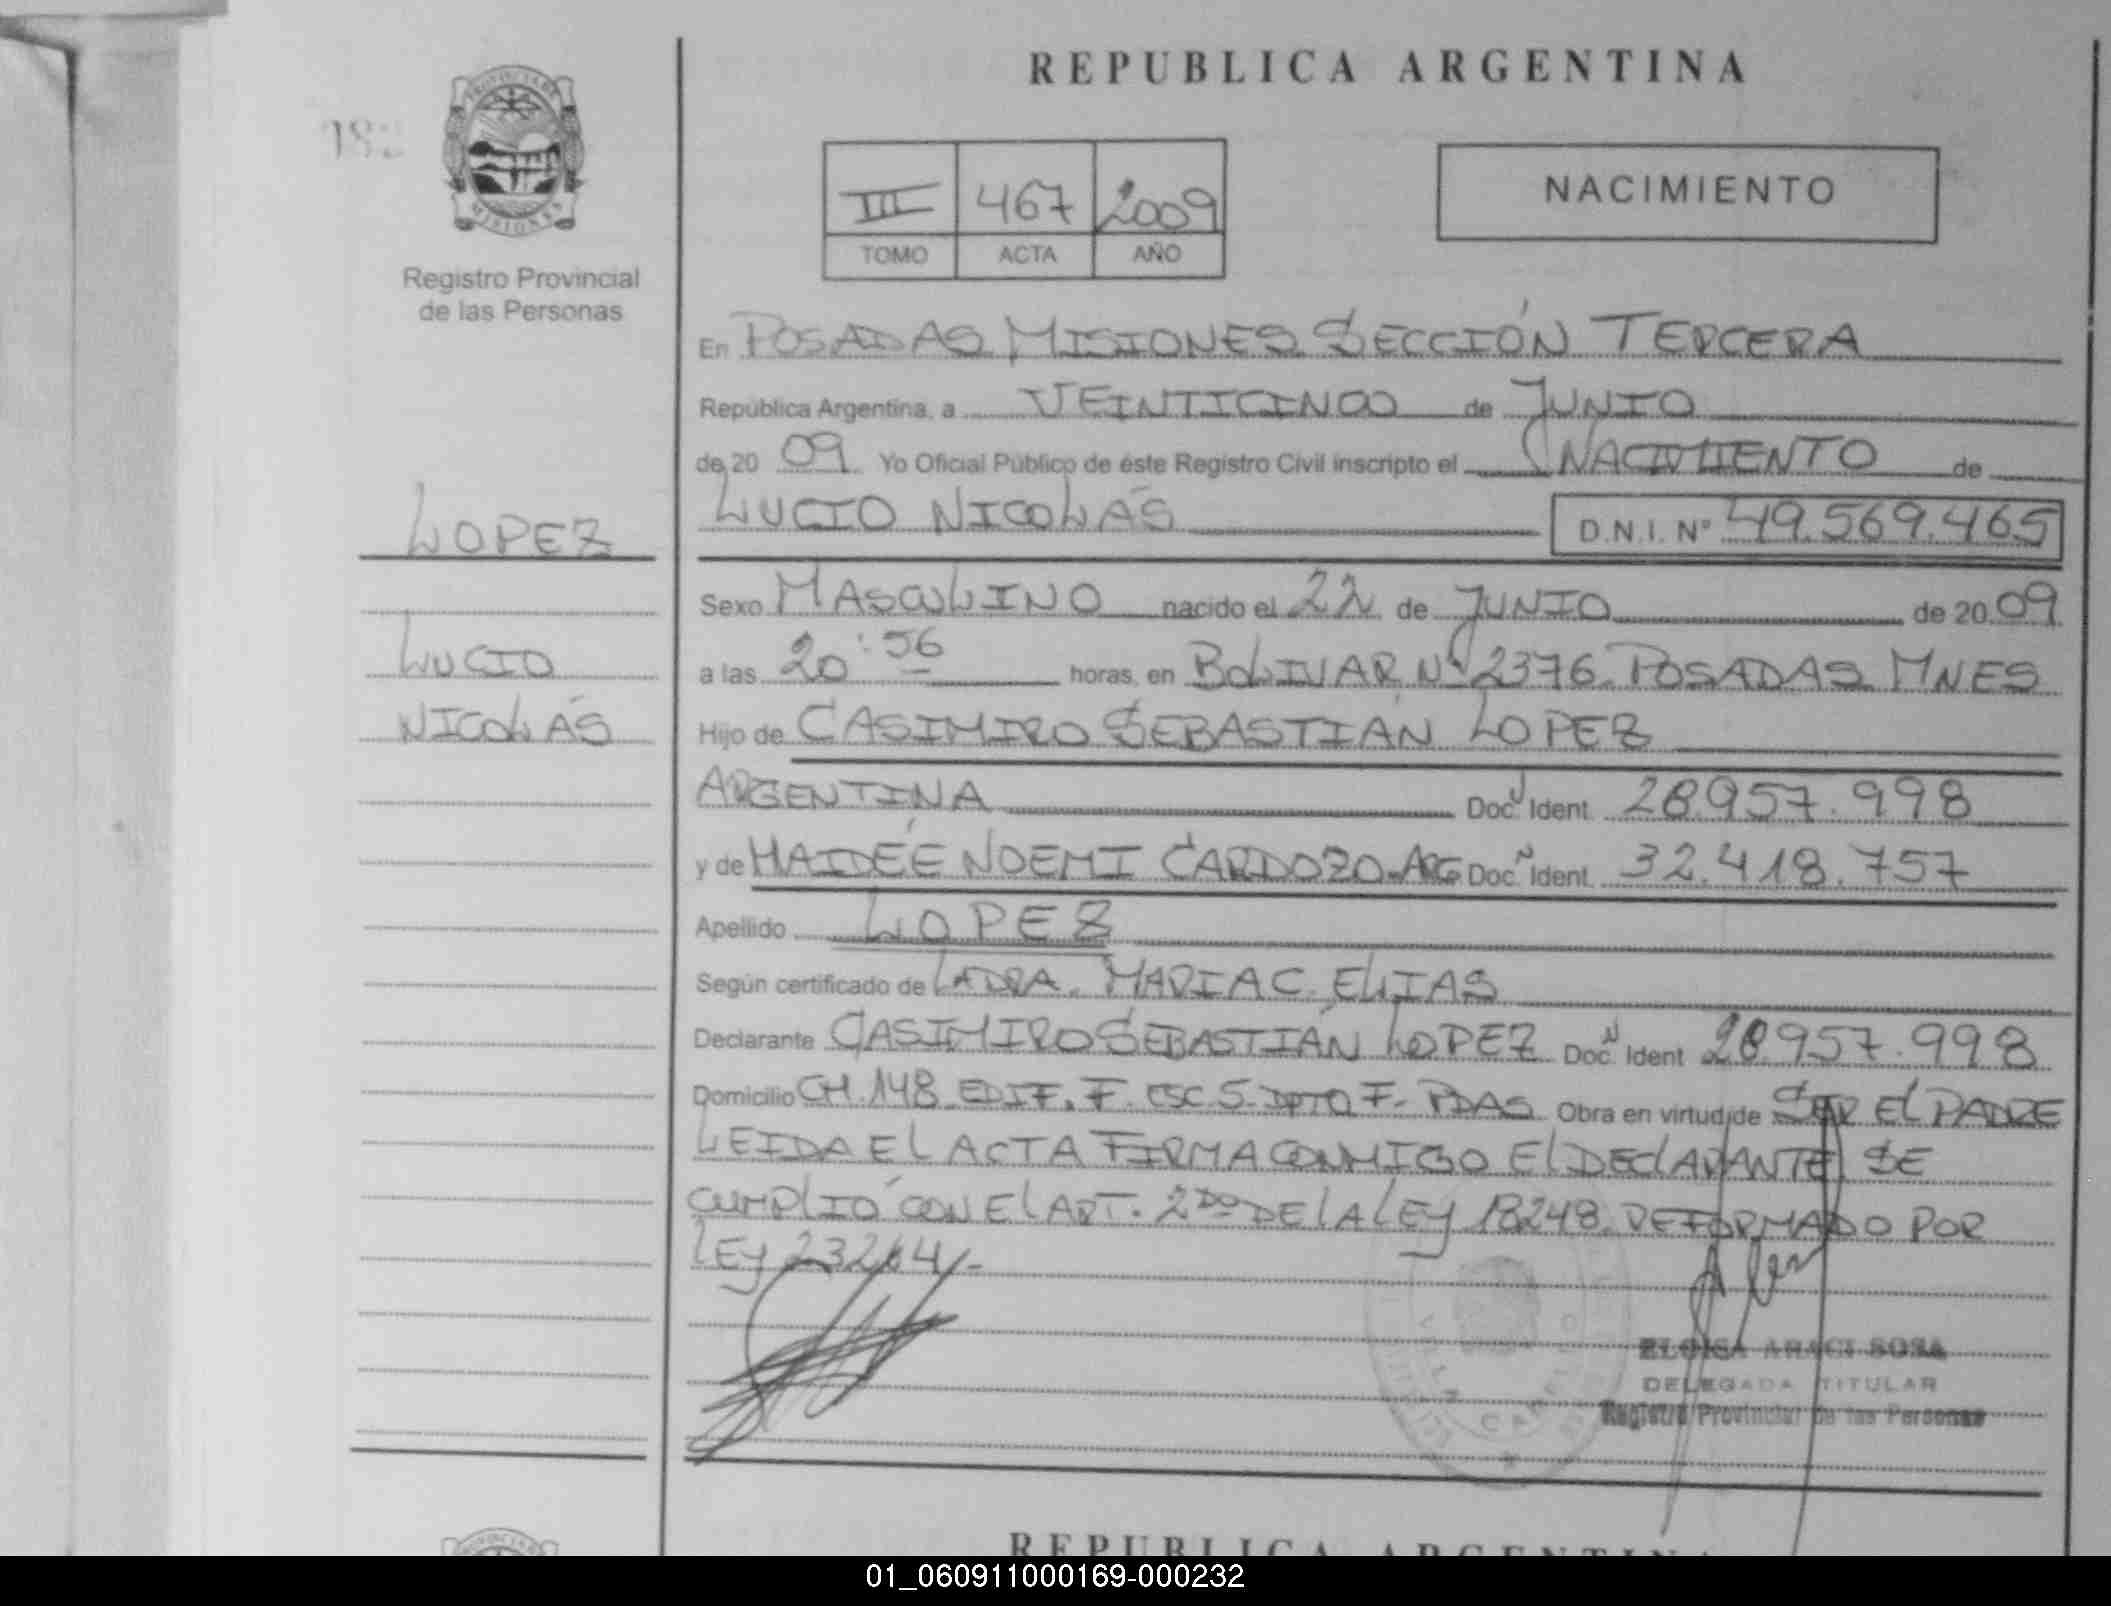 REPUBLICA ARGENTINA
PROVINCIA DE MISIONES
Registro Provincial
de las Personas
III 467 2009
TOMO ACTA AÑO
NACIMIENTO
LOPEZ
LUCIO
NICOLÁS
En POSADAS MISIONES SECCIÓN TERCERA
República Argentina, a VEINTICINCO de JUNIO
de 20 09 Yo Oficial Público de éste Registro Civil inscripto el NACIMIENTO de
LUCIO NICOLÁS D.N.I. Nº 49.569.465
Sexo MASCULINO nacido el 22 de JUNIO de 20 09
a las 20:56 horas, en BOLIVAR Nº 2376 POSADAS MNES
Hijo de CASIMIRO SEBASTIÁN LOPEZ
ARGENTINA Doc. Ident. 28.957.998
y de HAIDÉE NOEMI CARDOZO-ARG Doc. Ident. 32.418.757
Apellido LOPEZ
Según certificado de LA DRA. MARIA C. ELIAS
Declarante CASIMIRO SEBASTIÁN LOPEZ Doc. Ident 28.957.998
Domicilio CH.148 EDIF. F. ESC 5-DPTO F- PDAS Obra en virtud de SER EL PADRE
LEIDA EL ACTA FIRMA CONMIGO EL DECLARANTE SE
CUMPLIÓ CON EL ART. 2DO DE LA LEY 18248 REFORMADO POR
LEY 23264/-
ELOISA ARACI SOSA
DELEGADA TITULAR
Registro Provincial de las Personas
REPUBLICA ARGENTINA
01_060911000169-000232